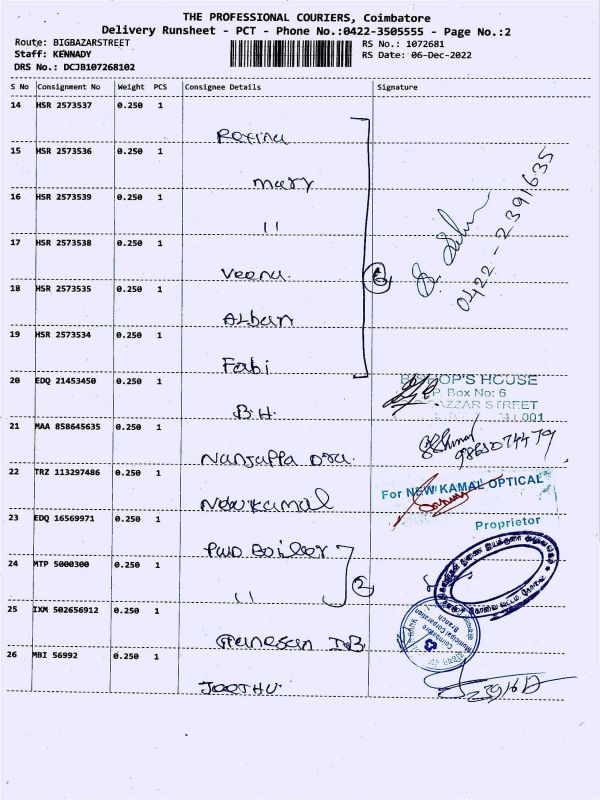 THE PROFESSIONAL COURIERS, Coimbatore
Delivery Runsheet - PCT - Phone No.:0422-3505555 - Page No.:2
Route: BIGBAZARSTREET
RS No.: 1072681
Staff: KENNADY
RS Date: 06-Dec-2022
DRS No.: DCJB107268102
S No Consignment No Weight PCS Consignee Details Signature
14 HSR 2573537 0.250 1
15 HSR 2573536 0.250 1 Mary
16 HSR 2573539 0.250 1 11
17 HSR 2573538 0.250 1 Veena.
18 HSR 2573535 0.250 1 Alban
0422-2391635
19 HSR 2573534 0.250 1 Fabi
20 EDQ 21453450 0.250 1 B.H.
BISHOP'S HOUSE
P. Box No: 6
BAZZAR STREET
001
21 MAA 858645635 0.250 1 Nanjappa
22 TRZ 113297486 0.250 1 New Kamal
For NEW KAMAL OPTICAL
Proprietor
23 EDQ 16569971 0.250 1 PWD Boiler
24 MTP 5000300 0.250 1 11
2
25 IXM 502656912 0.250 1 Ganesan
Coimbatore
Municipal Corporation
Branch
26 MBI 56992 0.250 1